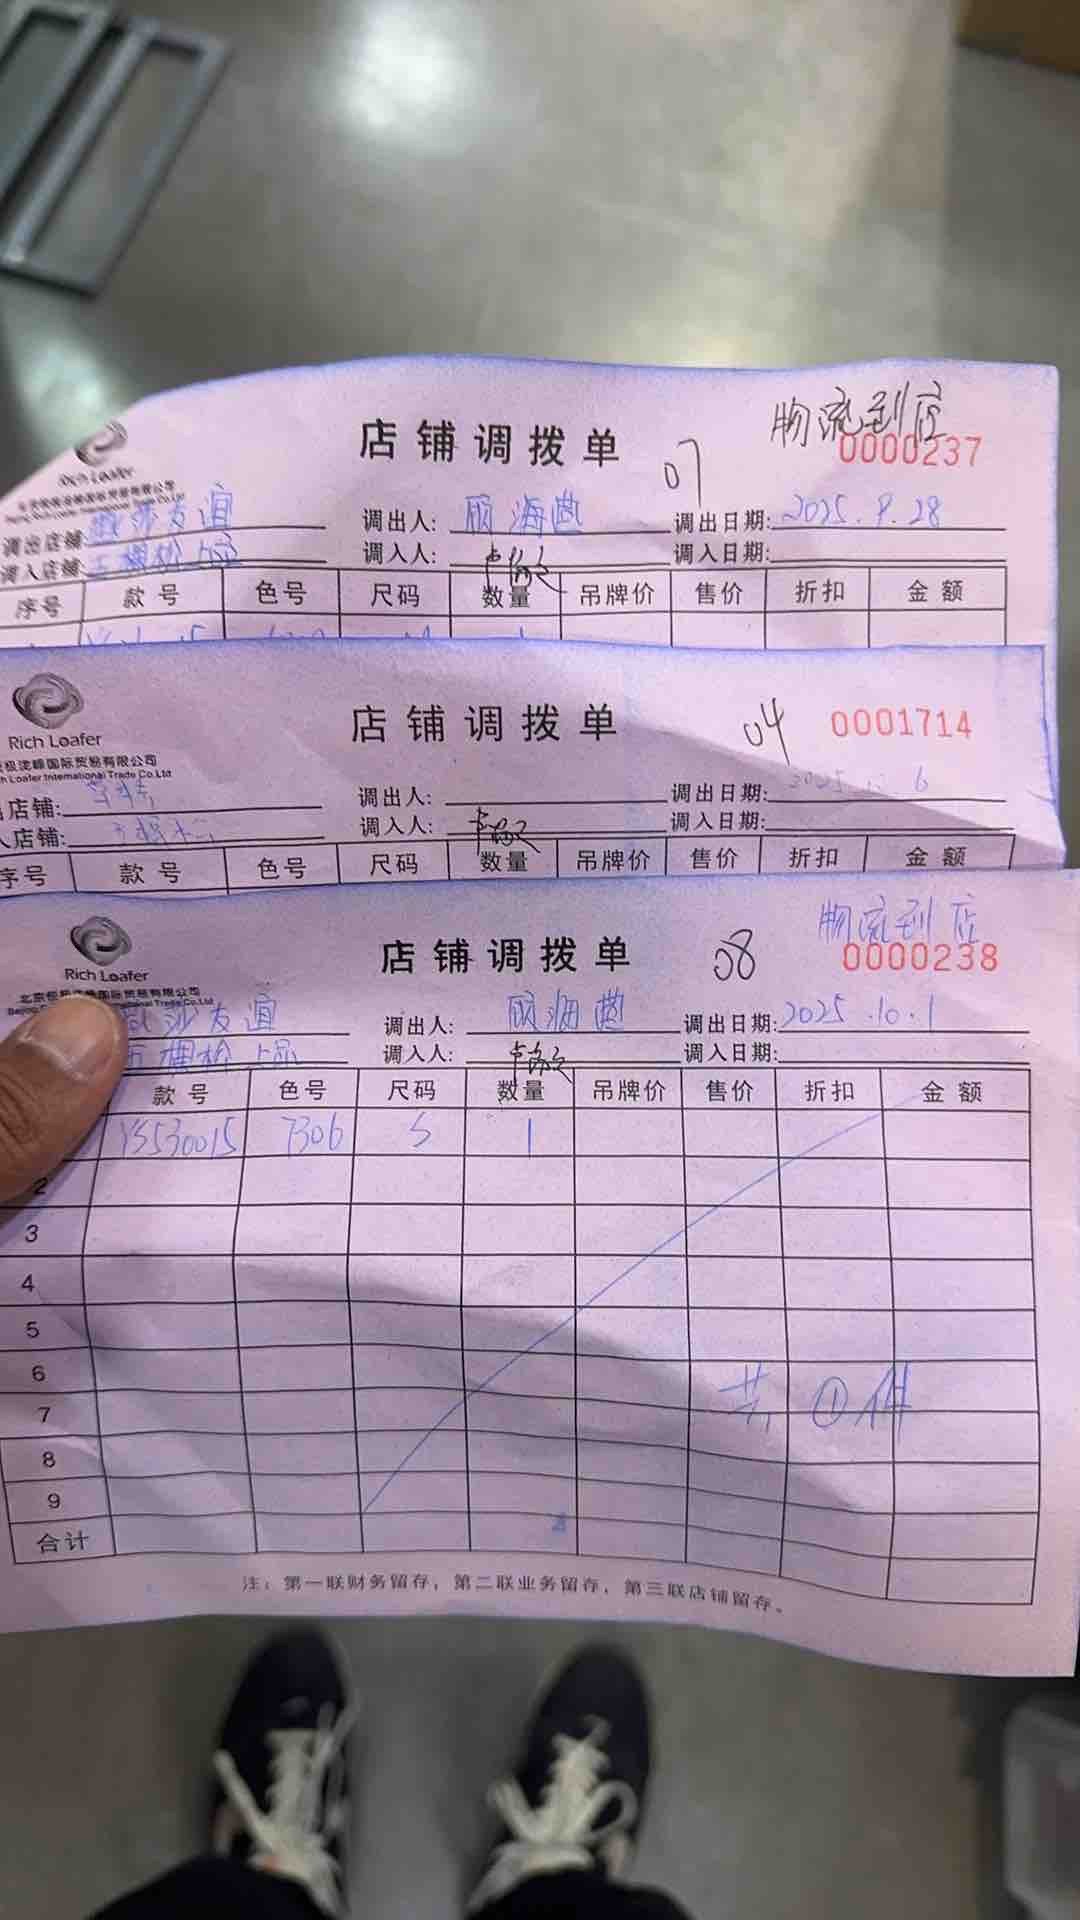 物流到店
店铺调拨单 07 0000237
Rich Loafer
调出店铺: 友谊 调出人: 调出日期: 2025.9.28
调入店铺: 调入人: 调入日期:
序号 款号 色号 尺码 数量 吊牌价 售价 折扣 金额
店铺调拨单 04 0001714
Rich Loafer
极泷峰国际贸易有限公司
h Loafer International Trade Co.Ltd
店铺: 调出人: 调出日期:
店铺: 调入人: 调入日期:
序号 款号 色号 尺码 数量 吊牌价 售价 折扣 金额
物流到店
店铺调拨单 08 0000238
Rich Loafer
国际贸易有限公司
莎友谊 调出人: 调出日期: 2025.10.1
调入人: 调入日期:
款号 色号 尺码 数量 吊牌价 售价 折扣 金额
YS530015 7306 S 1
2
3
4
5
6
共①件
7
8
9
合计
注: 第一联财务留存, 第二联业务留存, 第三联店铺留存。